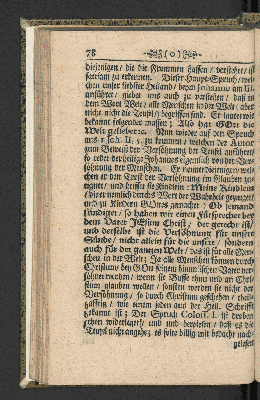 78 ( o )
diejenigen / die die Frommen hassen / verstehet / ist
sattsam zu erkennen. Dieser Haupt-Spruch / wel-
chen unser liebster Heiland beym Johanne am III.
anführet / giebet uns auch zu verstehen / daß in
dem Wort Welt / alle Menschen in der Welt / aber
nicht die Teufel / begriffen sind. Er lautet wie
bekannt folgender massen: Also hat GOtt die
Welt geliebet etc. Nun wieder auf den Spruch
aus 1 Joh. II. zu kommen / welchen der Autor
zum Beweiß der Versöhnung der Teufel anführet /
so redet der heilige Johannes eigentlich von der Ver-
söhnung der Menschen. Er
cher er den Trost der Versöhnung im Glauben zu-
eignet / und heisset sie Kindlein: Meine Kindlein
/ die er nemlich durch das Wort der Wahrheit gezeuget /
und zu Kindern GOttes gemachet: Ob jemand
sündiget / so haben wir einen Fürsprecher bey
dem Vater JEsum Christ / der gerecht ist /
und derselbe ist die Versöhnung für unsere
Sünde / nicht allein für die unsere / sondern
auch für der gantzen Welt / das ist für alle Men-
schen in der Welt; Ja alle Menschen können durch
Christum bey GOtt seinem himmlischen Vater ver-
söhnet werden / wenn sie Busse thun und an Chri-
stum glauben wollen / sonsten werden sie nicht der
Versöhnung / so durch Christum geschehen / theil-
hafftig / wie einem jeden aus der Heil. Schrifft
bekannt ist; Der Spruch Coloss. I. ist droben
schon widerleget / und und bewiesen / daß es die
Teufel nicht angehe; es seye billig mit bedacht nach-
gelesen